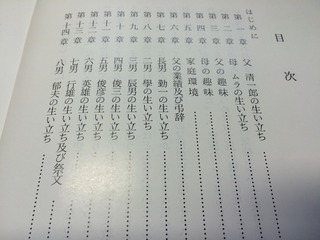 目次
はじめに
第一章 父 清一郎の生い立ち
第二章 母 ムラの生い立ち
第三章 父の趣味
第四章 母の趣味
第五章 家庭環境
第六章 父の業績及び弔辞
第七章 長男 勤一の生い立ち
第八章 二男 學の生い立ち
第九章 三男 辰男の生い立ち
第十章 四男 俊三の生い立ち
第十一章 五男 俊彦の生い立ち
第十二章 六男 英雄の生い立ち
第十三章 七男 行雄の生い立ち及び祭文
第十四章 八男 郁夫の生い立ち